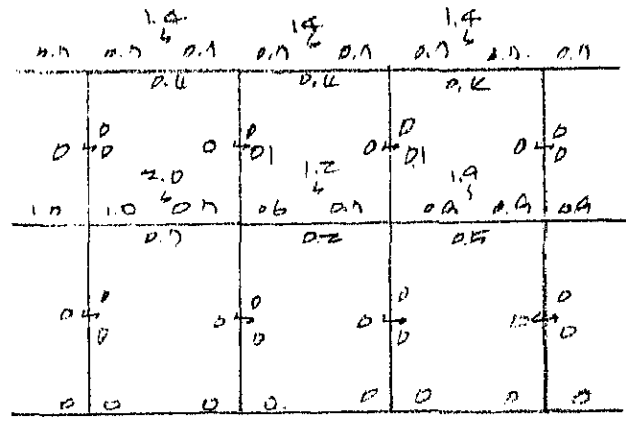 1.4 1.4 1.4
0.7 0.7 0.7 0.7 0.7 0.7 0.7 0.7
0.4 0.4 0.4
0 0 0 0
0 0 0 01 0 0.1 0 0
2.0 1.2 1.9
1.0 1.0 0.7 0.6 0.7 0.9 0.9 0.9
0.7 0.2 0.5
0 0 0 0
0 0 0 0
0 0 0 0
0 0 0 0 0 0 0 0